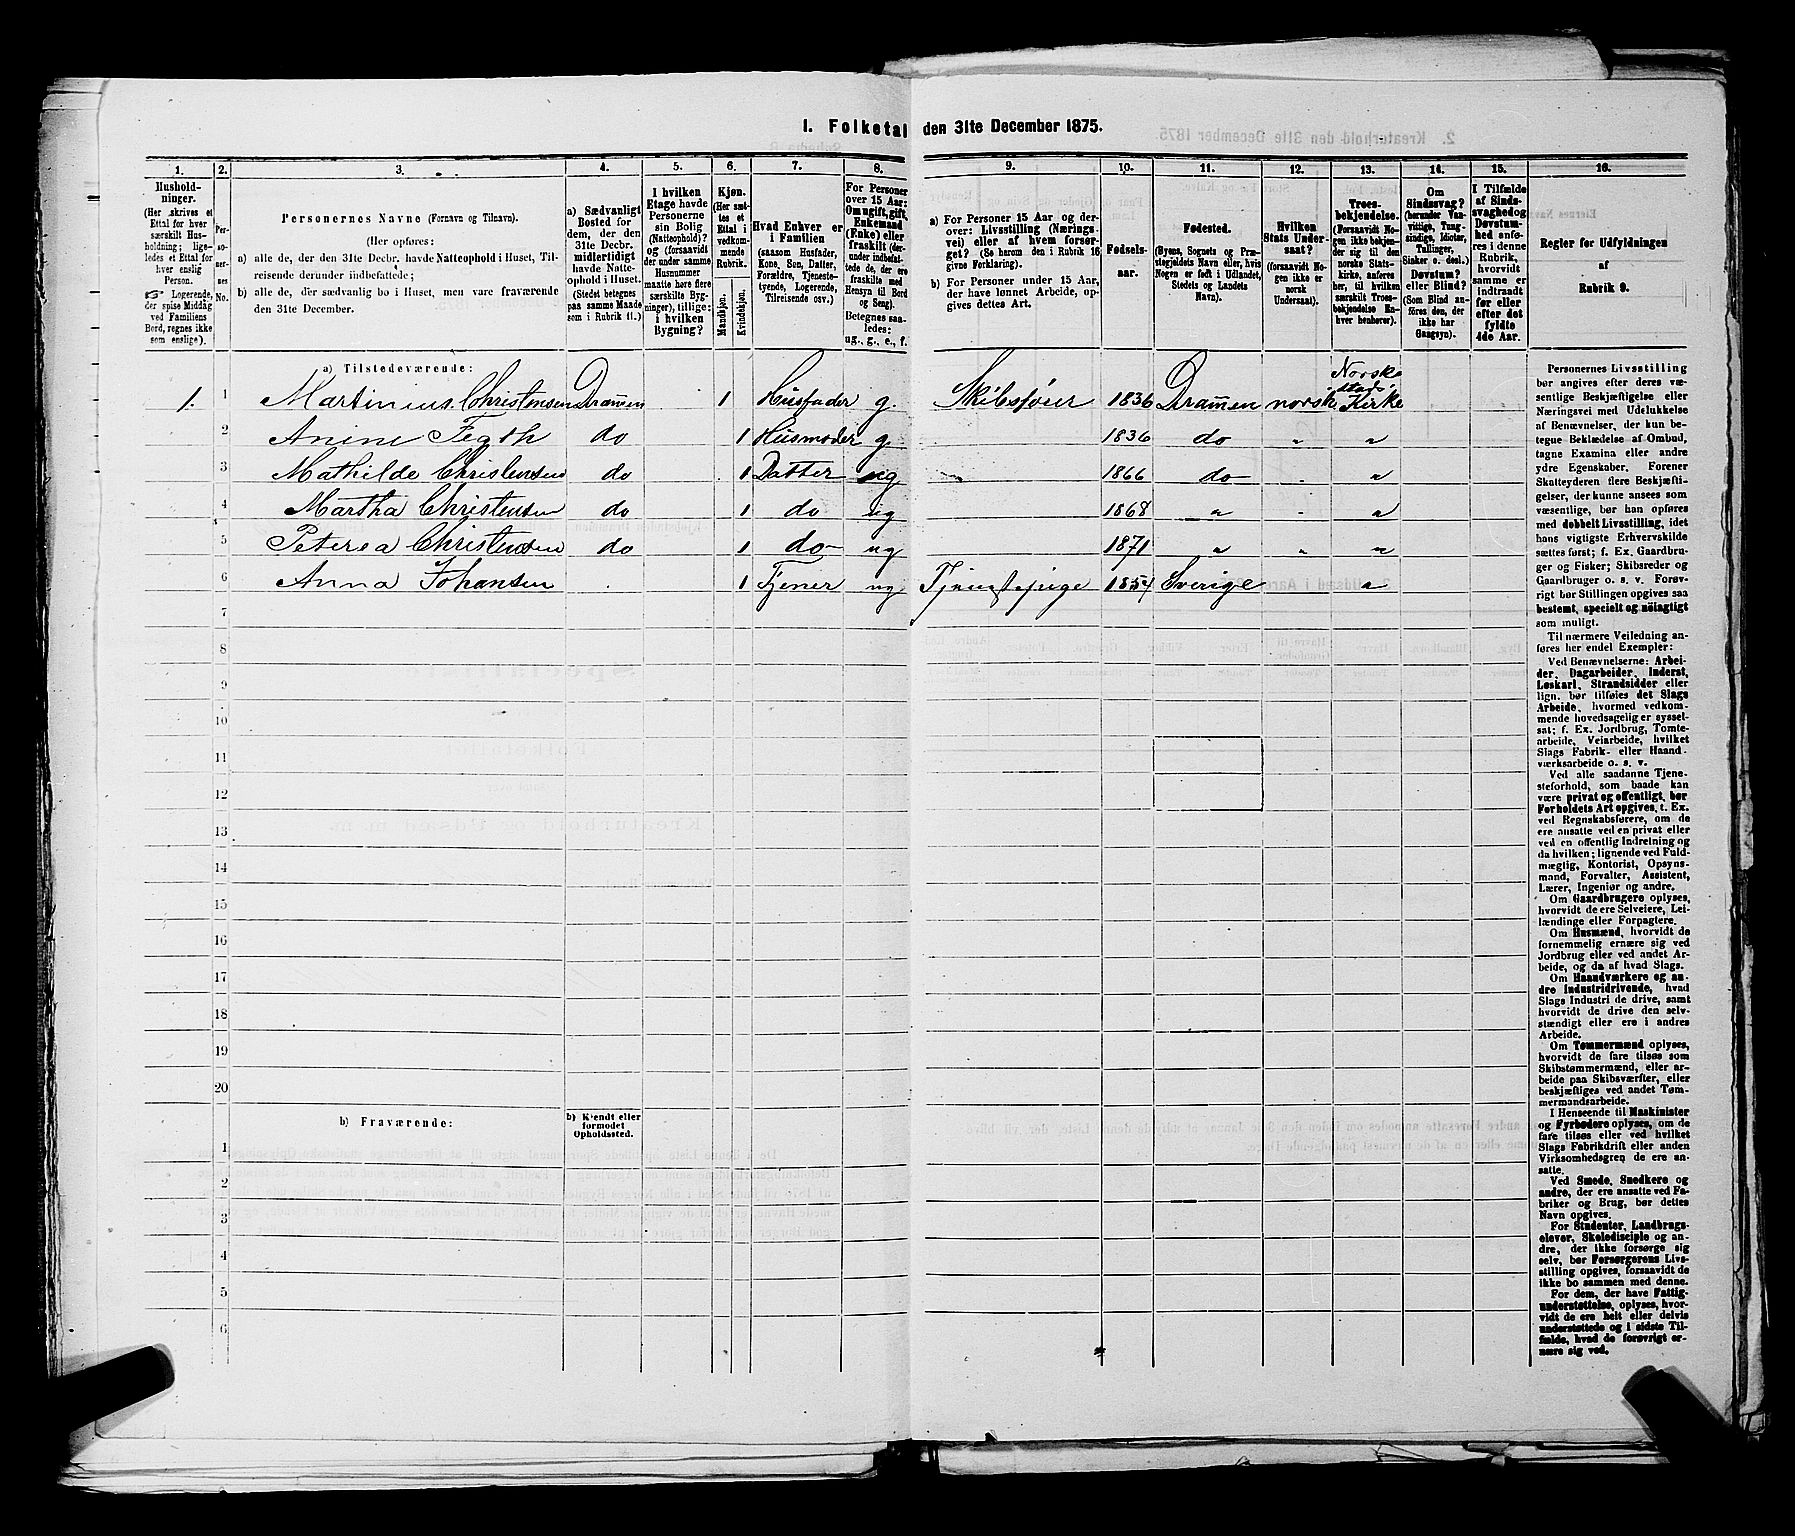 1. Folketal den 31te December 1875.
1. 2. 3. 4. 5. 6. 7. 8. 9. 10. 11. 12. 13. 14. 15. 16.
Husholdninger.
(Her skrives et
Ettal for hver
særskilt Husholdning;
ligeledes et Ettal for
hver enslig
Person.
Logerende,
der spise Middag
ved Familiens
Bord, regnes ikke
som enslige).
Personernes No.
Personernes Navne (Fornavn og Tilnavn).
(Her opføres:
a) alle de, der den 31te Decbr. havde Natteophold i Huset, Tilreisende derunder indbefattede;
b) alle de, der sædvanlig bo i Huset, men vare fraværende
den 31te December.
a) Sædvanligt
Bosted for
dem, der den
31te Decbr.
midlertidigt
havde Natteophold i Huset.
(Stedet betegnes
paa samme Maade
som i Rubrik 11.)
I hvilken
Etage havde
Personerne
sin Bolig
(Natteophold)?
og (forsaavidt
der under samme
Husnummer
maatte høre flere
særskilte Bygninger), tillige:
i hvilken
Bygning?
Kjøn.
(Her sættes et
Ettal i
vedkommende
Rubrik.
Mandkjøn.
Kvindekjøn.
Hvad Enhver er
i Familien
(saasom Husfader,
Kone, Søn, Datter,
Forældre, Tjenestetyende, Logerende,
Tilreisende osv.)
For Personer
over 15 Aar:
Om ugift, gift,
Enkemand
(Enke) eller
fraskilt (derunder indbefattede de, der ere
fraskilte med
Hensyn til Bord
og Seng).
Betegnes saaledes:
ug., g., e., f.
a) For Personer 15 Aar og derover: Livsstilling (Næringsvei) eller af hvem forsørget? (Se herom den i Rubrik 16
givne Forklaring).
b) For Personer under 15 Aar,
der have lønnet Arbeide, opgives dettes Art.
Fødselsaar.
Fødested.
(Byens, Sognets og Præstegjeldets Navn eller, hvis
Nogen er født i Udlandet,
Stedets og Landets
Navn).
Hvilken
Stats Undersaat?
(forsaavidt Nogen ikke er
norsk
Undersaat).
Troesbekjendelse.
(Forsaavidt Nogen ikke bekjender sig til den
norske Statskirke, anføres
her, til hvilken
særskilt Troesbekjendelse Enhver henhører).
Om
Sindssvag?
(herunder Vanvittige, Tungsindige, Idioter,
Tullinger,
Sinker o. desl.)
Døvstum?
eller Blind?
(Som Blind anføres den, der
ikke har
Gangsyn).
I Tilfælde
af Sindssvaghed og
Døvstumhed anføres i denne
Rubrik,
hvorvidt
samme er
indtraadt
før eller
efter det
fyldte
4de Aar.
Regler for Udfyldningen
af
Rubrik 9.
a) Tilstedeværende:
1. 1 Martinius Christensen Dramen 1 Husfader g. Skibsfører 1836 Dramen norsk Norske Stads Kirke
2 Anine Fegth do 1 Husmoder g. 1836 do " "
3 Mathilde Christensen do 1 Datter ug 1866 do "
4 Martha Christensen do 1 do ug 1868 " "
5 Peterea Christensen do 1 do ug 1871 " " "
6 Anna Johansen 1 Tjener ug Tjenestepige 1854 Sverige "
7
8
9
10
11
12
13
14
15
16
17
18
19
20
b) Fraværende:
b) Kjendt eller
formodet
Opholdssted.
1
2
3
4
5
6
Personernes Livsstilling
bør angives efter deres væsentlige Beskjæftigelse eller
Næringsvei med Udelukkelse
af Benævnelser, der kun betegne Beklædelse af Ombud,
tagne Examina eller andre
ydre Egenskaber. Forener
Skatteyderen flere Beskjæftigelser, der kunne ansees som
væsentlige, bør han opføres
med dobbelt Livsstilling, idet
hans vigtigste Erhvervskilde
sættes først; f. Ex. Gaardbruger og Fisker; Skibsreder og
Gaardbruger o. s. v. Forøvrigt bør Stillingen opgives saa
bestemt, specielt og nøiagtigt
som muligt.
Til nærmere Veiledning anføres her endel Exempler:
Ved Benævnelserne: Arbeider, Dagarbeider, Inderst,
Løskarl, Strandsidder eller
lign. bør tilføies det Slags
Arbeide, hvormed vedkommende hovedsagelig er sysselsat; f. Ex. Jordbrug, Tomtearbeide, Veiarbeide, hvilket
Slags Fabrik- eller Haandværksarbeide o. s. v.
Ved alle saadanne Tjenesteforhold, som baade kan
være privat og offentligt, bør
Forholdets Art opgives, t. Ex.
ved Regnskabsførere, om de
ere ansatte ved en privat eller
ved en offentlig Indretning og
da hvilken; lignende ved Fuldmægtig, Kontorist, Opsynsmand, Forvalter, Assistent,
Lærer, Ingeniør og andre.
Om Gaardbrugere oplyses,
hvorvidt de ere Selveiere, Leilændinge eller Forpagtere.
Om Husmænd, hvorvidt de
fornemmelig ernære sig ved
Jordbrug eller ved andet Arbeide, og da af hvad Slags.
Om Haandværkere og andre Industridrivende, hvad
Slags Industri de drive, samt
hvorvidt de drive den selvstændigt eller ere i andres
Arbeide.
Om Tømmermænd oplyses,
hvorvidt de fare tilsøs som
Skibstømmermænd, eller arbeide paa Skibsværfter, eller
beskjæftiges ved andet Tømmermandsarbeide.
I Henseende til Maskinister
og Fyrbødere oplyses, om de
fare tilsøs eller ved hvilket
Slags Fabrikdrift eller anden
Virksomhedsgren de ere ansatte.
Ved Smede, Snedkere og
andre, der ere ansatte ved Fabriker og Brug, bør dettes
Navn opgives.
For Studenter, Landbrugselever, Skoledisciple og andre, der ikke forsørge sig
selv, bør Forsørgerens Livsstilling opgives, forsaavidt de
ikke bo sammen med denne.
For dem, der have Fattigunderstøttelse, oplyses, hvorvidt de ere helt eller delvis
understøttede og i sidste Tilfælde, hvad de forøvrigt ernære sig ved.